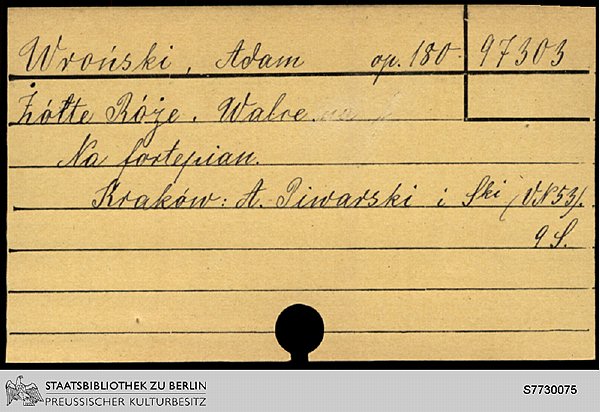 Wroński, Adam op. 180. 97303
Żółte Róże. Walce
Na fortepian.
Kraków: A. Piwarski i Ski (VN53).
9 S.
STAATSBIBLIOTHEK ZU BERLIN
PREUSSISCHER KULTURBESITZ
S7730075